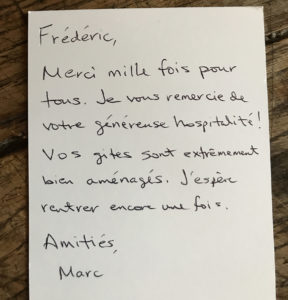 Frédéric,
Merci mille fois pour
tous. Je vous remercie de
votre généreuse hospitalité!
Vos gites sont extrêmement
bien aménagés. J'espère
rentrer encore une fois.
Amitiés,
Marc